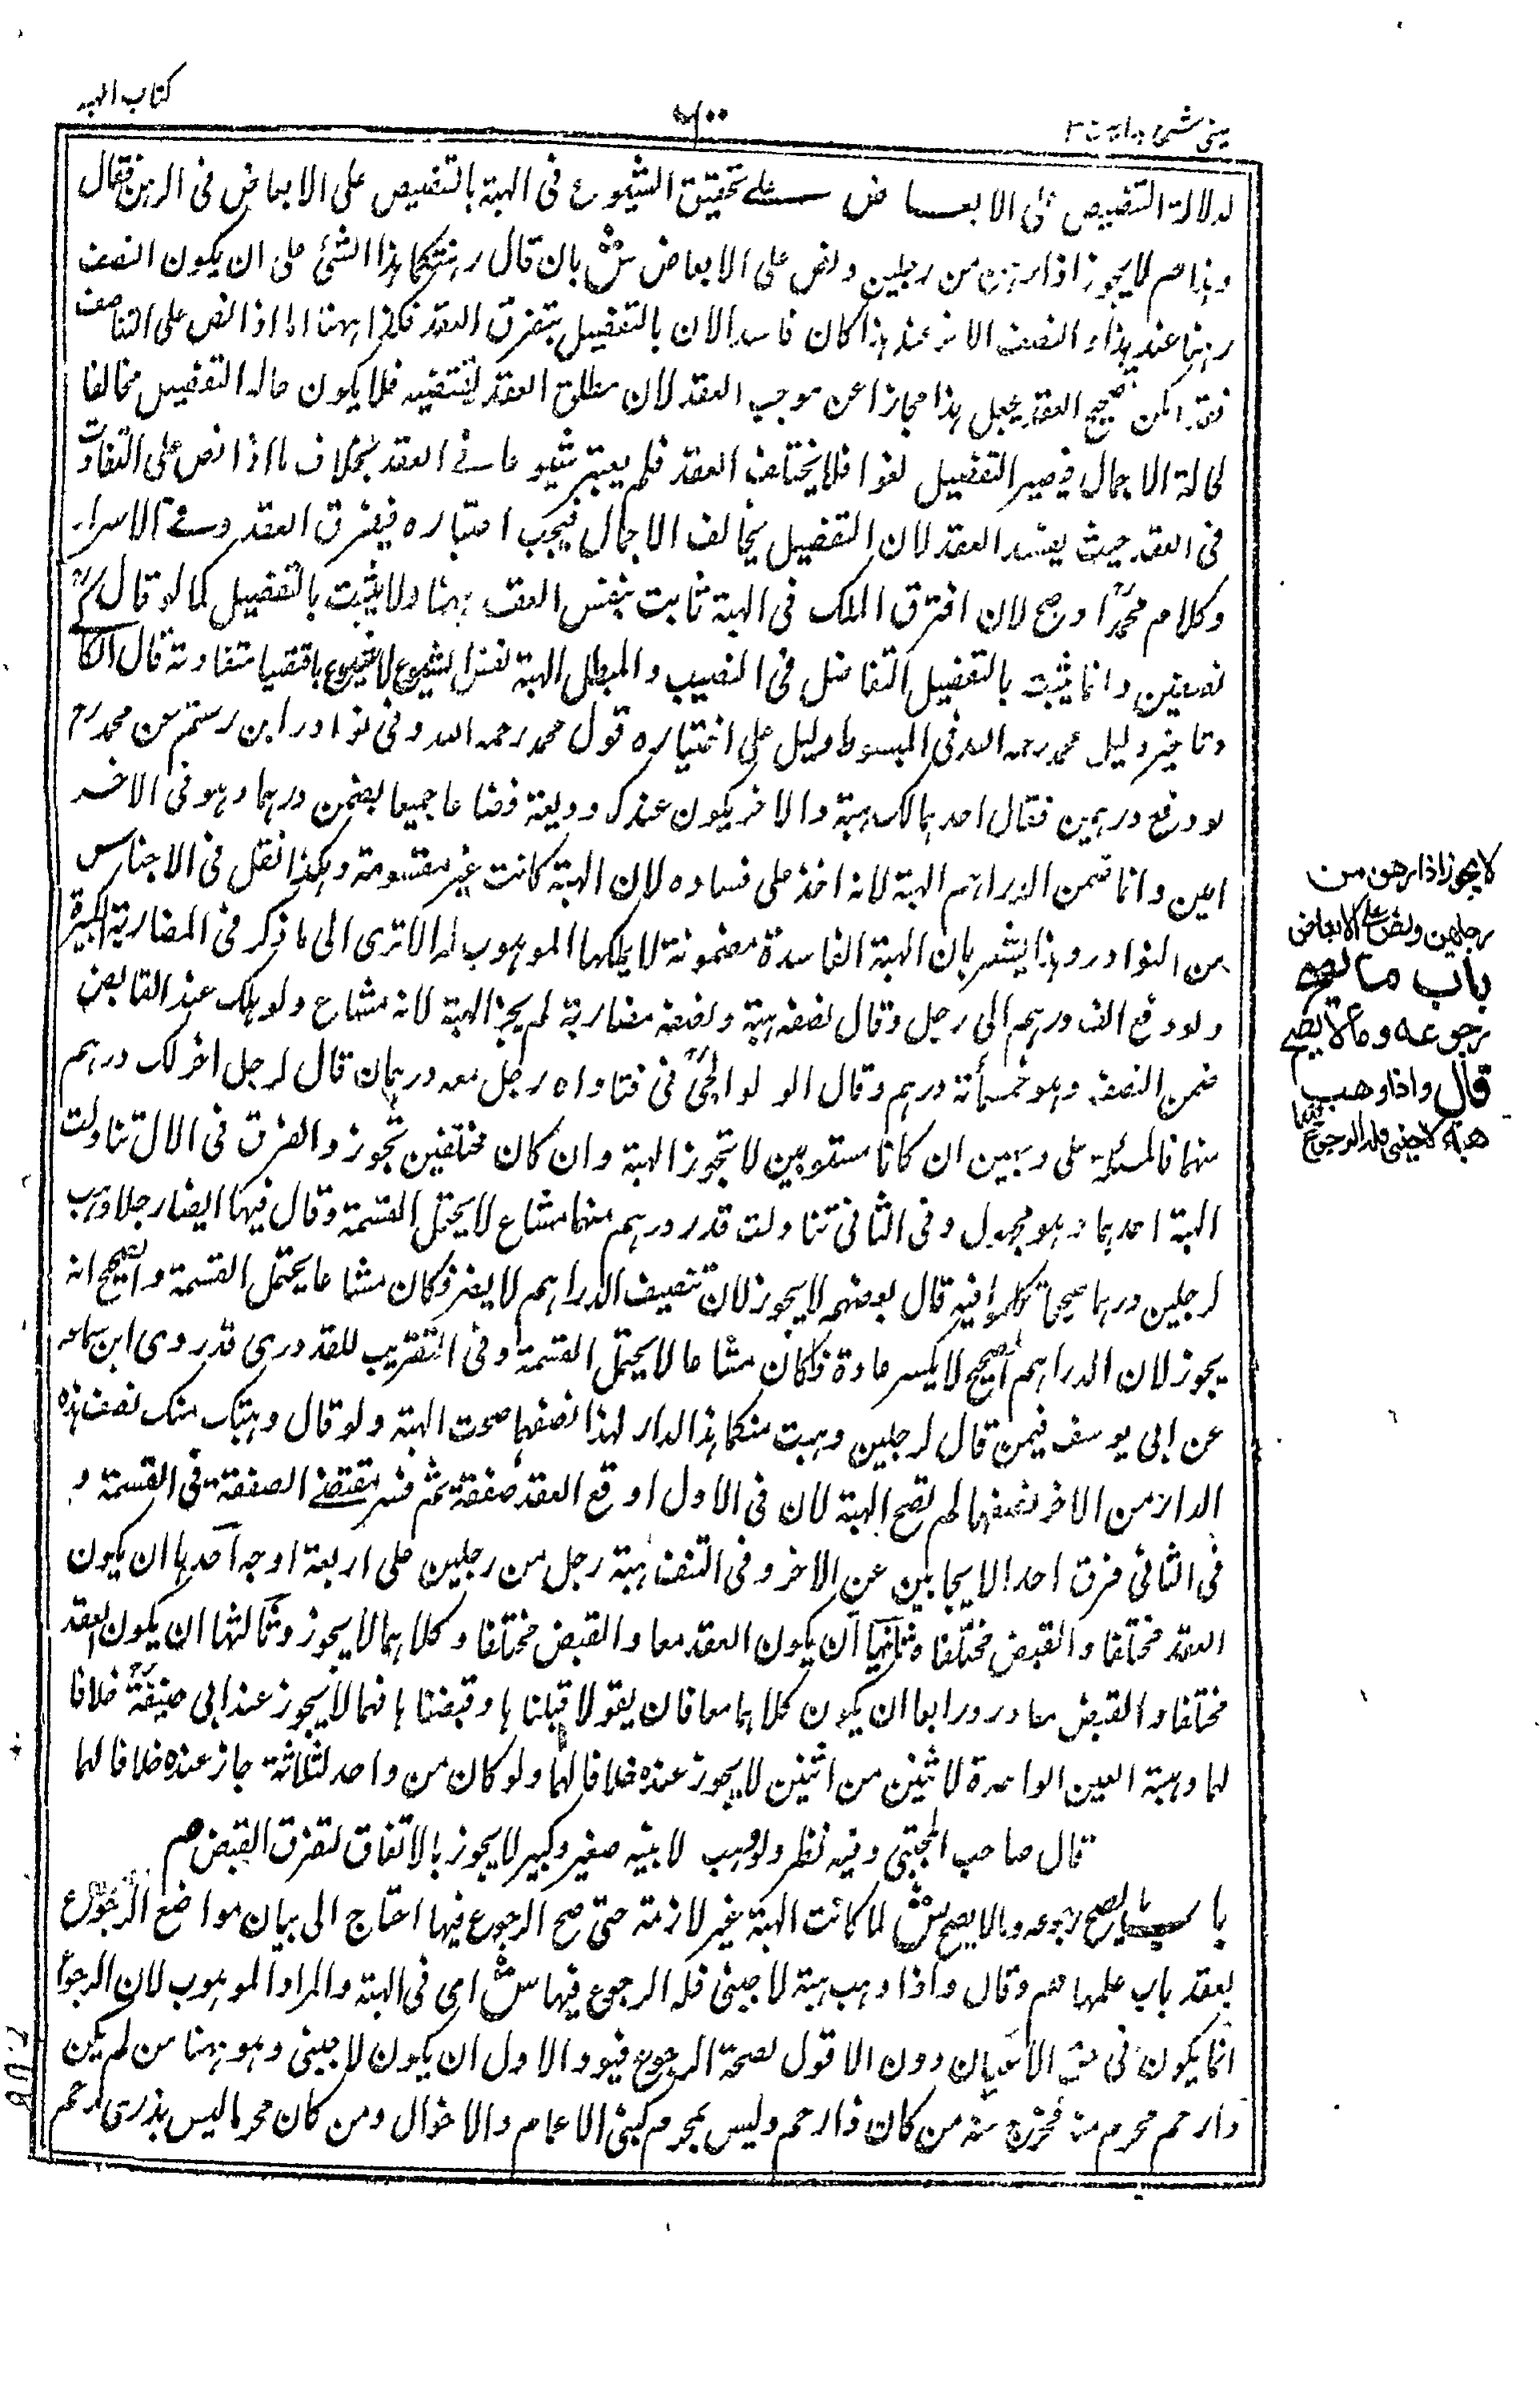 كتاب الهبة
٧٠٠
عینی شرح ہدایہ ج ٣
لدلالة التنصيص على الابعاض على تحقيق الشيوع فى الهبة بالتنصيص على الابعاض فى الرهن فقال
ولهذا هم لا يجوز اذا رهن من رجلين ونص على الابعاض ش بان قال رهنتكما هذا الشئ على ان يكون النصف
رهنا عند هذا والنصف الاخر عند هذا كان فاسدا لان بالتفصيل يتفرق العقد فكذا ههنا اما اذا نص على التناصف
فقد امكن تصحيح العقد بجعل هذا مجازا عن موجب العقد لان مطلق العقد يقتضيه فلا يكون حالة التفصيل مخالفا
لحالة الاجمال فيصير التفصيل لغوا فلا يختلف العقد فلم يعتبر شيوعا فى العقد بخلاف ما اذا نص على التفاوت
فى العقد حيث يفسد العقد لان التفصيل يخالف الاجمال فيجب اعتباره فيفترق العقد وفى الاسرار
وكلام محمدؒ اوضح لان افترق الملك فى الهبة ثابت بنفس العقد بهما ولا يثبت بالتفصيل كما لو قال
نصفين وانما يثبت بالتفصيل التفاضل فى النصيب والمبطل الهبة نفس الشيوع لا شيوع باقتضيا متفاوتة قال الكا
وتاخير دليل محمد رحمه الله فى المبسوط دليل على اختياره قول محمد رحمه الله وفى نوادر ابن رستم عن محمد رح
لو دفع درهمين فقال احدهما لك هبة والاخر يكون عندك وديعة فضاعا جميعا يضمن درهما وهو فى الاخر
امين وانما ضمن الدراهم الهبة لانه اخذ على فساده لان الهبة كانت غير مقسومة وهكذا نقل فى الاجناس
من النوادر وهذا يشعر بان الهبة الفاسدة مضمونة لا يملكها الموهوب له الا ترى الى ما ذكر فى المضاربة الكبيرة
ولو دفع الف درهم الى رجل وقال نصفه هبة ونصفه مضاربة لم يجز الهبة لانه مشاع ولو هلك عند القابض
ضمن النصف وهو خمسمأئة درهم وقال الولوالجىؒ فى فتاواه رجل معه درهمان قال لرجل اخر لك درهم
منهما فالمسئلة على وجهين ان كانا مستويين لا تجوز الهبة وان كان مختلفين تجوز والفرق فى الاول تناولت
الهبة احدهما وهو مجهول وفى الثانى تناولت قدر درهم منهما مشاع لا يحتمل القسمة وقال فيها ايضا رجلا وهب
لرجلين درهما صحيحا تكلموا فيه قال بعضهم لا يجوز لان تنصيف الدراهم لا يضر فكان مشاعا يحتمل القسمة والصحيح انه
يجوز لان الدراهم الصحيح لا يكسر عادة فكان مشاعا لا يحتمل القسمة وفى التقريب للقدورى قد روى ابن سماعه
عن ابى يوسف فيمن قال لرجلين وهبت منكما هذا الدار لهذا نصفها صحت الهبة ولو قال وهبتك منك نصف هذه
الدار من الاخر نصفها لم تصح الهبة لان فى الاول اوقع العقد صفقة ثم فسر مقتضى الصفقة فى القسمة و
فى الثانى فرق احد الايجابين عن الاخر وفى النتف هبة رجل من رجلين على اربعة اوجه احدها ان يكون
العقد مختلفا والقبض مختلفا وثانيها ان يكون العقد معا والقبض مختلفا وكلاهما لا يجوز وثالثها ان يكون العقد
مختلفا والقبض معا ورابعا ان يكون كلاهما معا فان يقولا قبلناها وقبضناها فهما لا يجوز عند ابى حنيفةؒ خلافا
لهما وهبة العين الواحدة لاثنين من اثنين لا يجوز عنده خلافا لهما ولو كان من واحد لثلاثة جاز عنده خلافا لهما
قال صاحب المجتبى وفيه نظر ولو وهب لابنيه صغير وكبير لا يجوز بالاتفاق لتفرق القبض هم
باب ما يصح رجوعه وما لا يصح ش لما كانت الهبة غير لازمة حتى صح الرجوع فيها احتاج الى بيان مواضع الرجوع
بعقد باب علمها هم وقال واذا وهب هبة لاجنبى فله الرجوع فيها ش اى فى الهبة والمراد الموهوب لان الرجوع
انما يكون فى حق الاعيان دون الاقول لصحة الرجوع قيود الاول ان يكون لاجنبى وهو ههنا من لم يكن
ذا رحم محرم منه فخرج منه من كان ذا رحم وليس بمحرم كبنى الاعمام والاخوال ومن كان محرما ليس بذى رحم
لا يجوز اذا رهن من
رجلين ونص على الابعاض
باب ما يصح
رجوعه وما لا يصح
قال واذا وهب
هبة لاجنبى فله الرجوع فيها